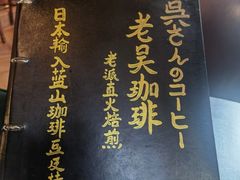 呉さんのコーヒー
老吴珈琲
老派直火焙煎
日本輸入蓝山珈琲豆